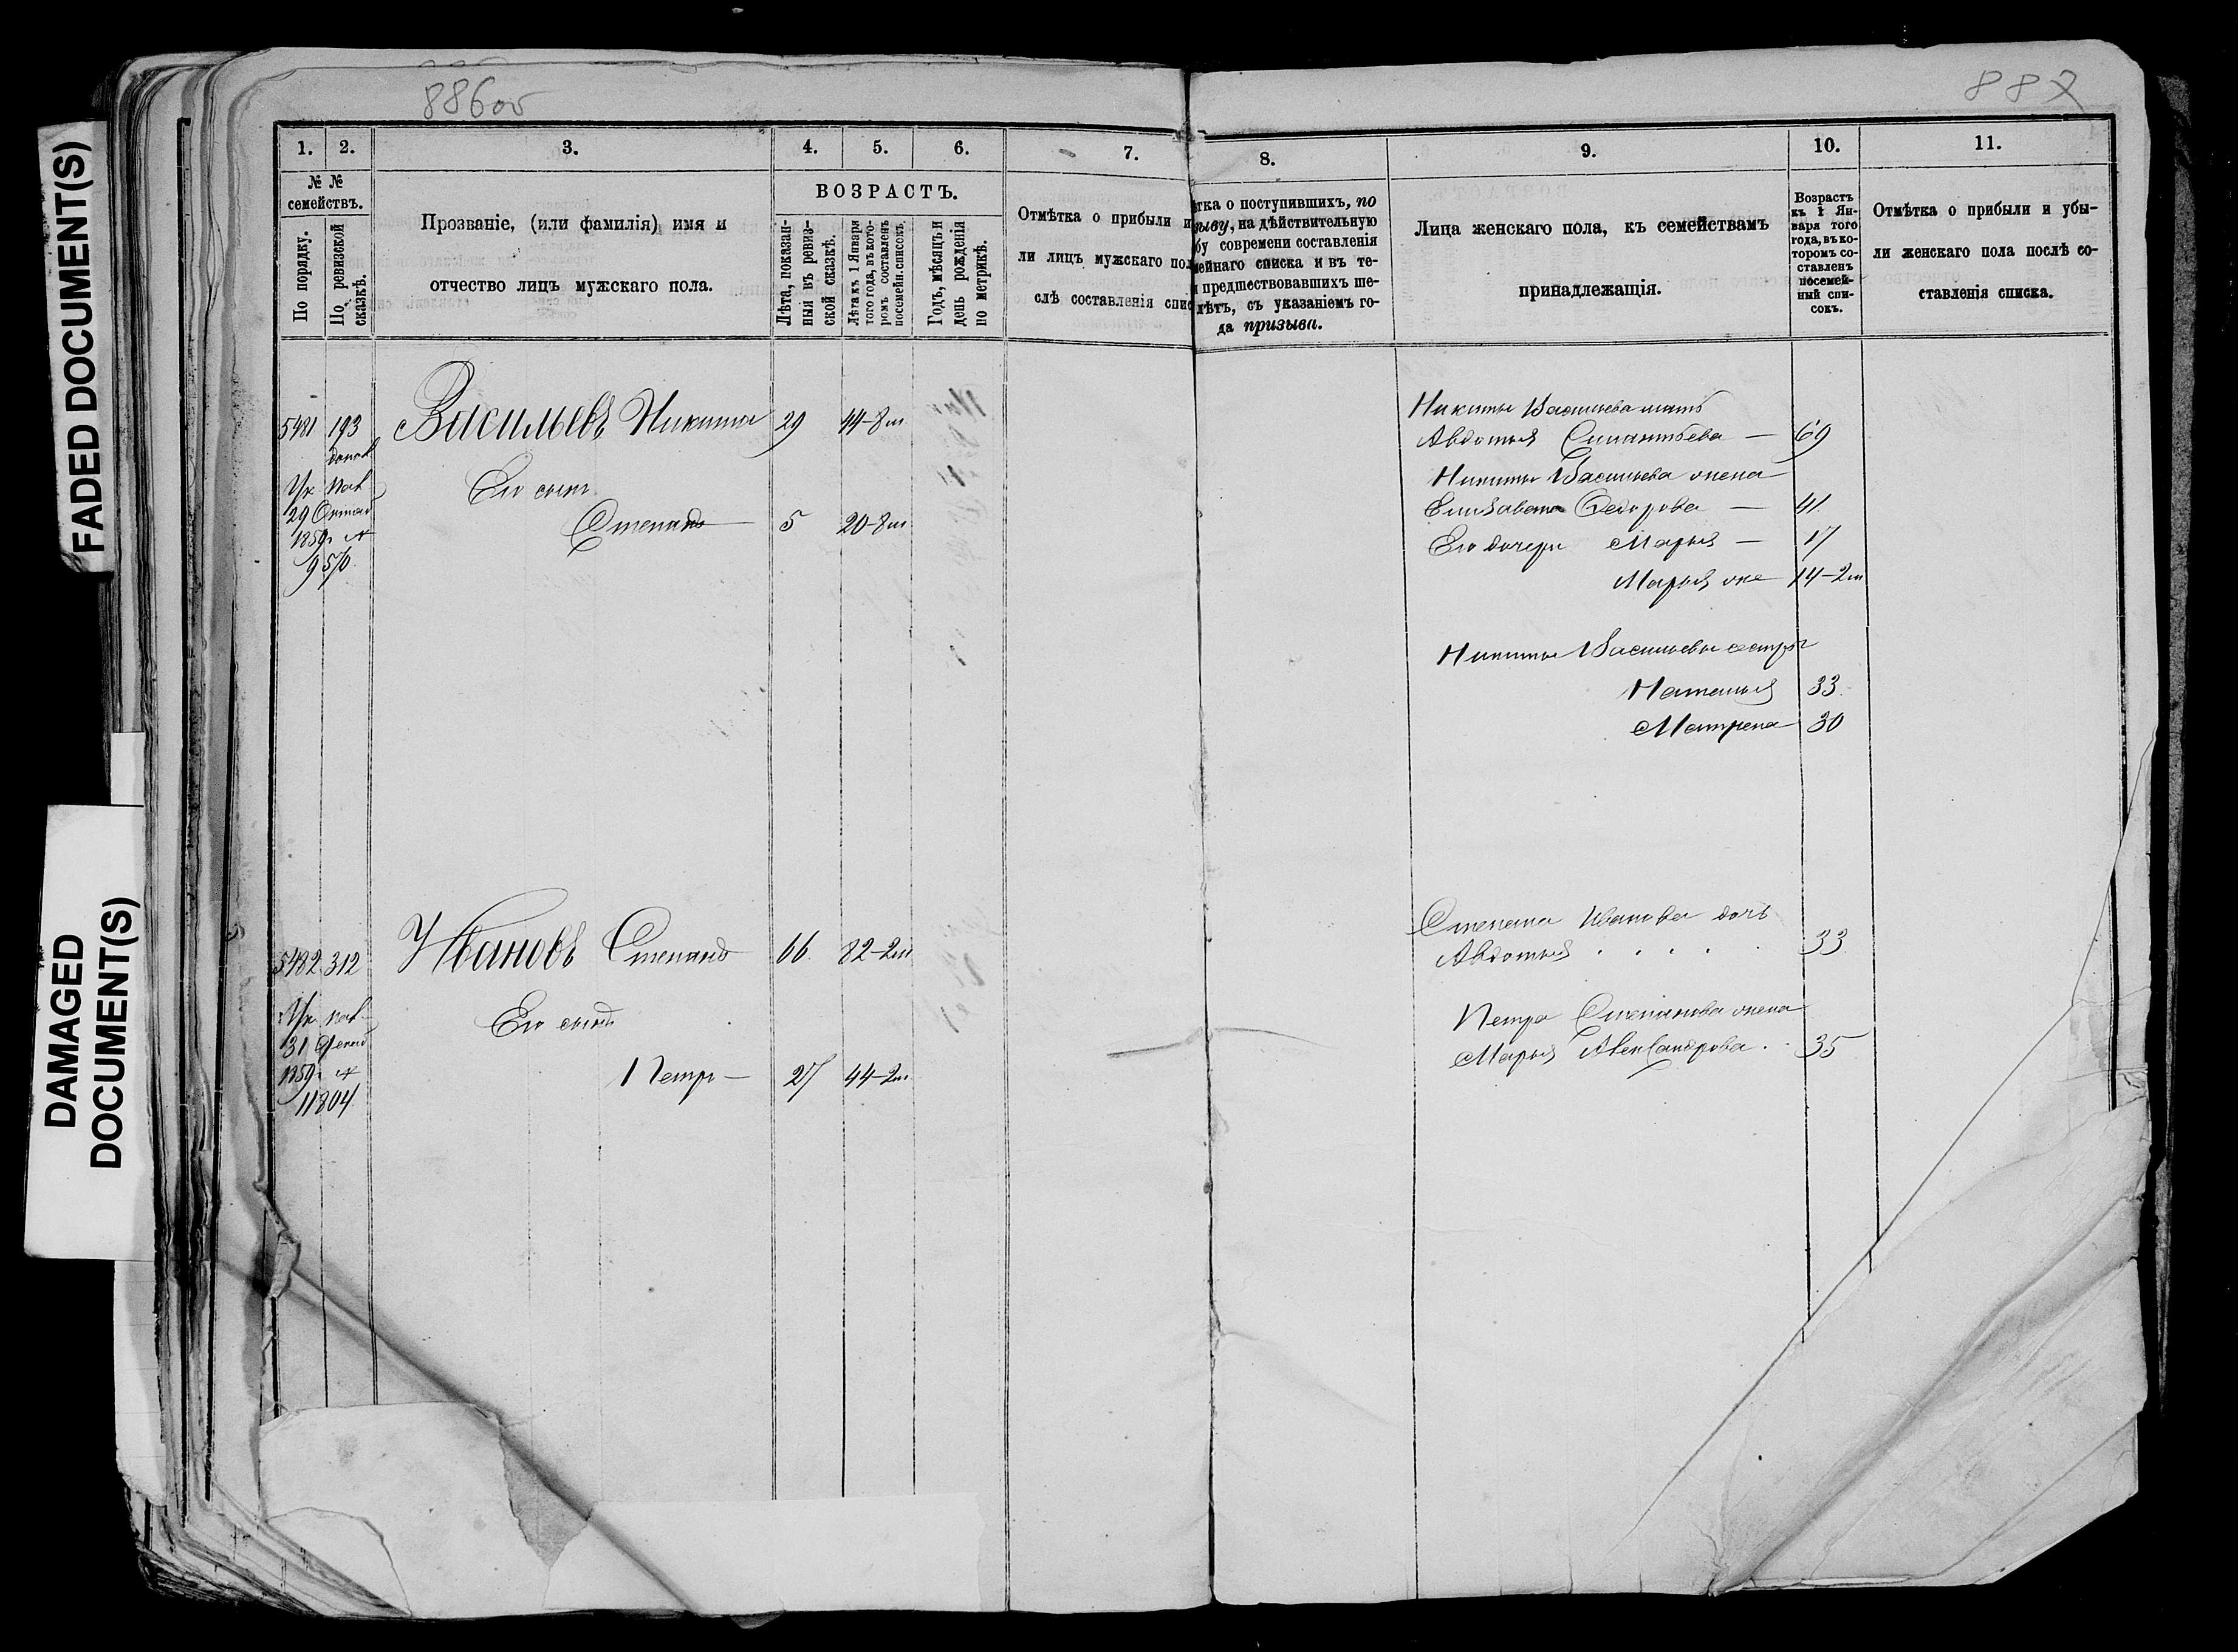 FADED DOCUMENT(S)
DAMAGED
DOCUMENT(S)
886об
1. 2. 3. 4. 5. 6. 7.
№ №
семействъ.
По порядку.
По ревизской
сказкѣ.
Прозваніе, (или фамилія) имя и
отчество лицъ мужскаго пола.
ВОЗРАСТЪ.
Лѣта, показан-
ныя въ ревиз-
ской сказкѣ.
Лѣта къ 1 Января
того года, въ кото-
ромъ составленъ
посемейн. списокъ.
Годъ, мѣсяцъ и
день рожденія
по метрикѣ.
Отмѣтка о прибыли и
ли лицъ мужскаго пол
слѣ составленія спис
5481 193 Васильевъ Никита 29 44-8м
Его сынъ
29
1859г. №
Степанъ 5 20-8м
9570.
5482 312 Ивановъ Степанъ 66 82-2м
Его сынъ
31
1859г. №
Петръ 27 44-2м
11804.
887
8. 9. 10. 11.
ѣтка о поступившихъ, по
зыву, на дѣйствительную
бу современи составленія
мейнаго списка и въ те-
и предшествовавшихъ ше-
лѣтъ, съ указаніемъ го-
да призыва.
Лица женскаго пола, къ семействамъ
принадлежащія.
Возрастъ
къ 1 Ян-
варя того
года, въ ко-
торомъ со-
ставленъ
посемей-
ный спи-
сокъ.
Отмѣтка о прибыли и убы-
ли женскаго пола послѣ со-
ставленія списка.
Никиты Васильева мать
Авдотья — 69
Никиты Васильева жена
Елизавета Федорова — 41
Его дочери Марья — 17
Марья же 14-2м
Никиты Васильева сестры
Наталья 33.
Матрена 30
Степана Иванова дочь
Авдотья . . . . . 33
Петра Степанова жена
Марья Александрова . . 35